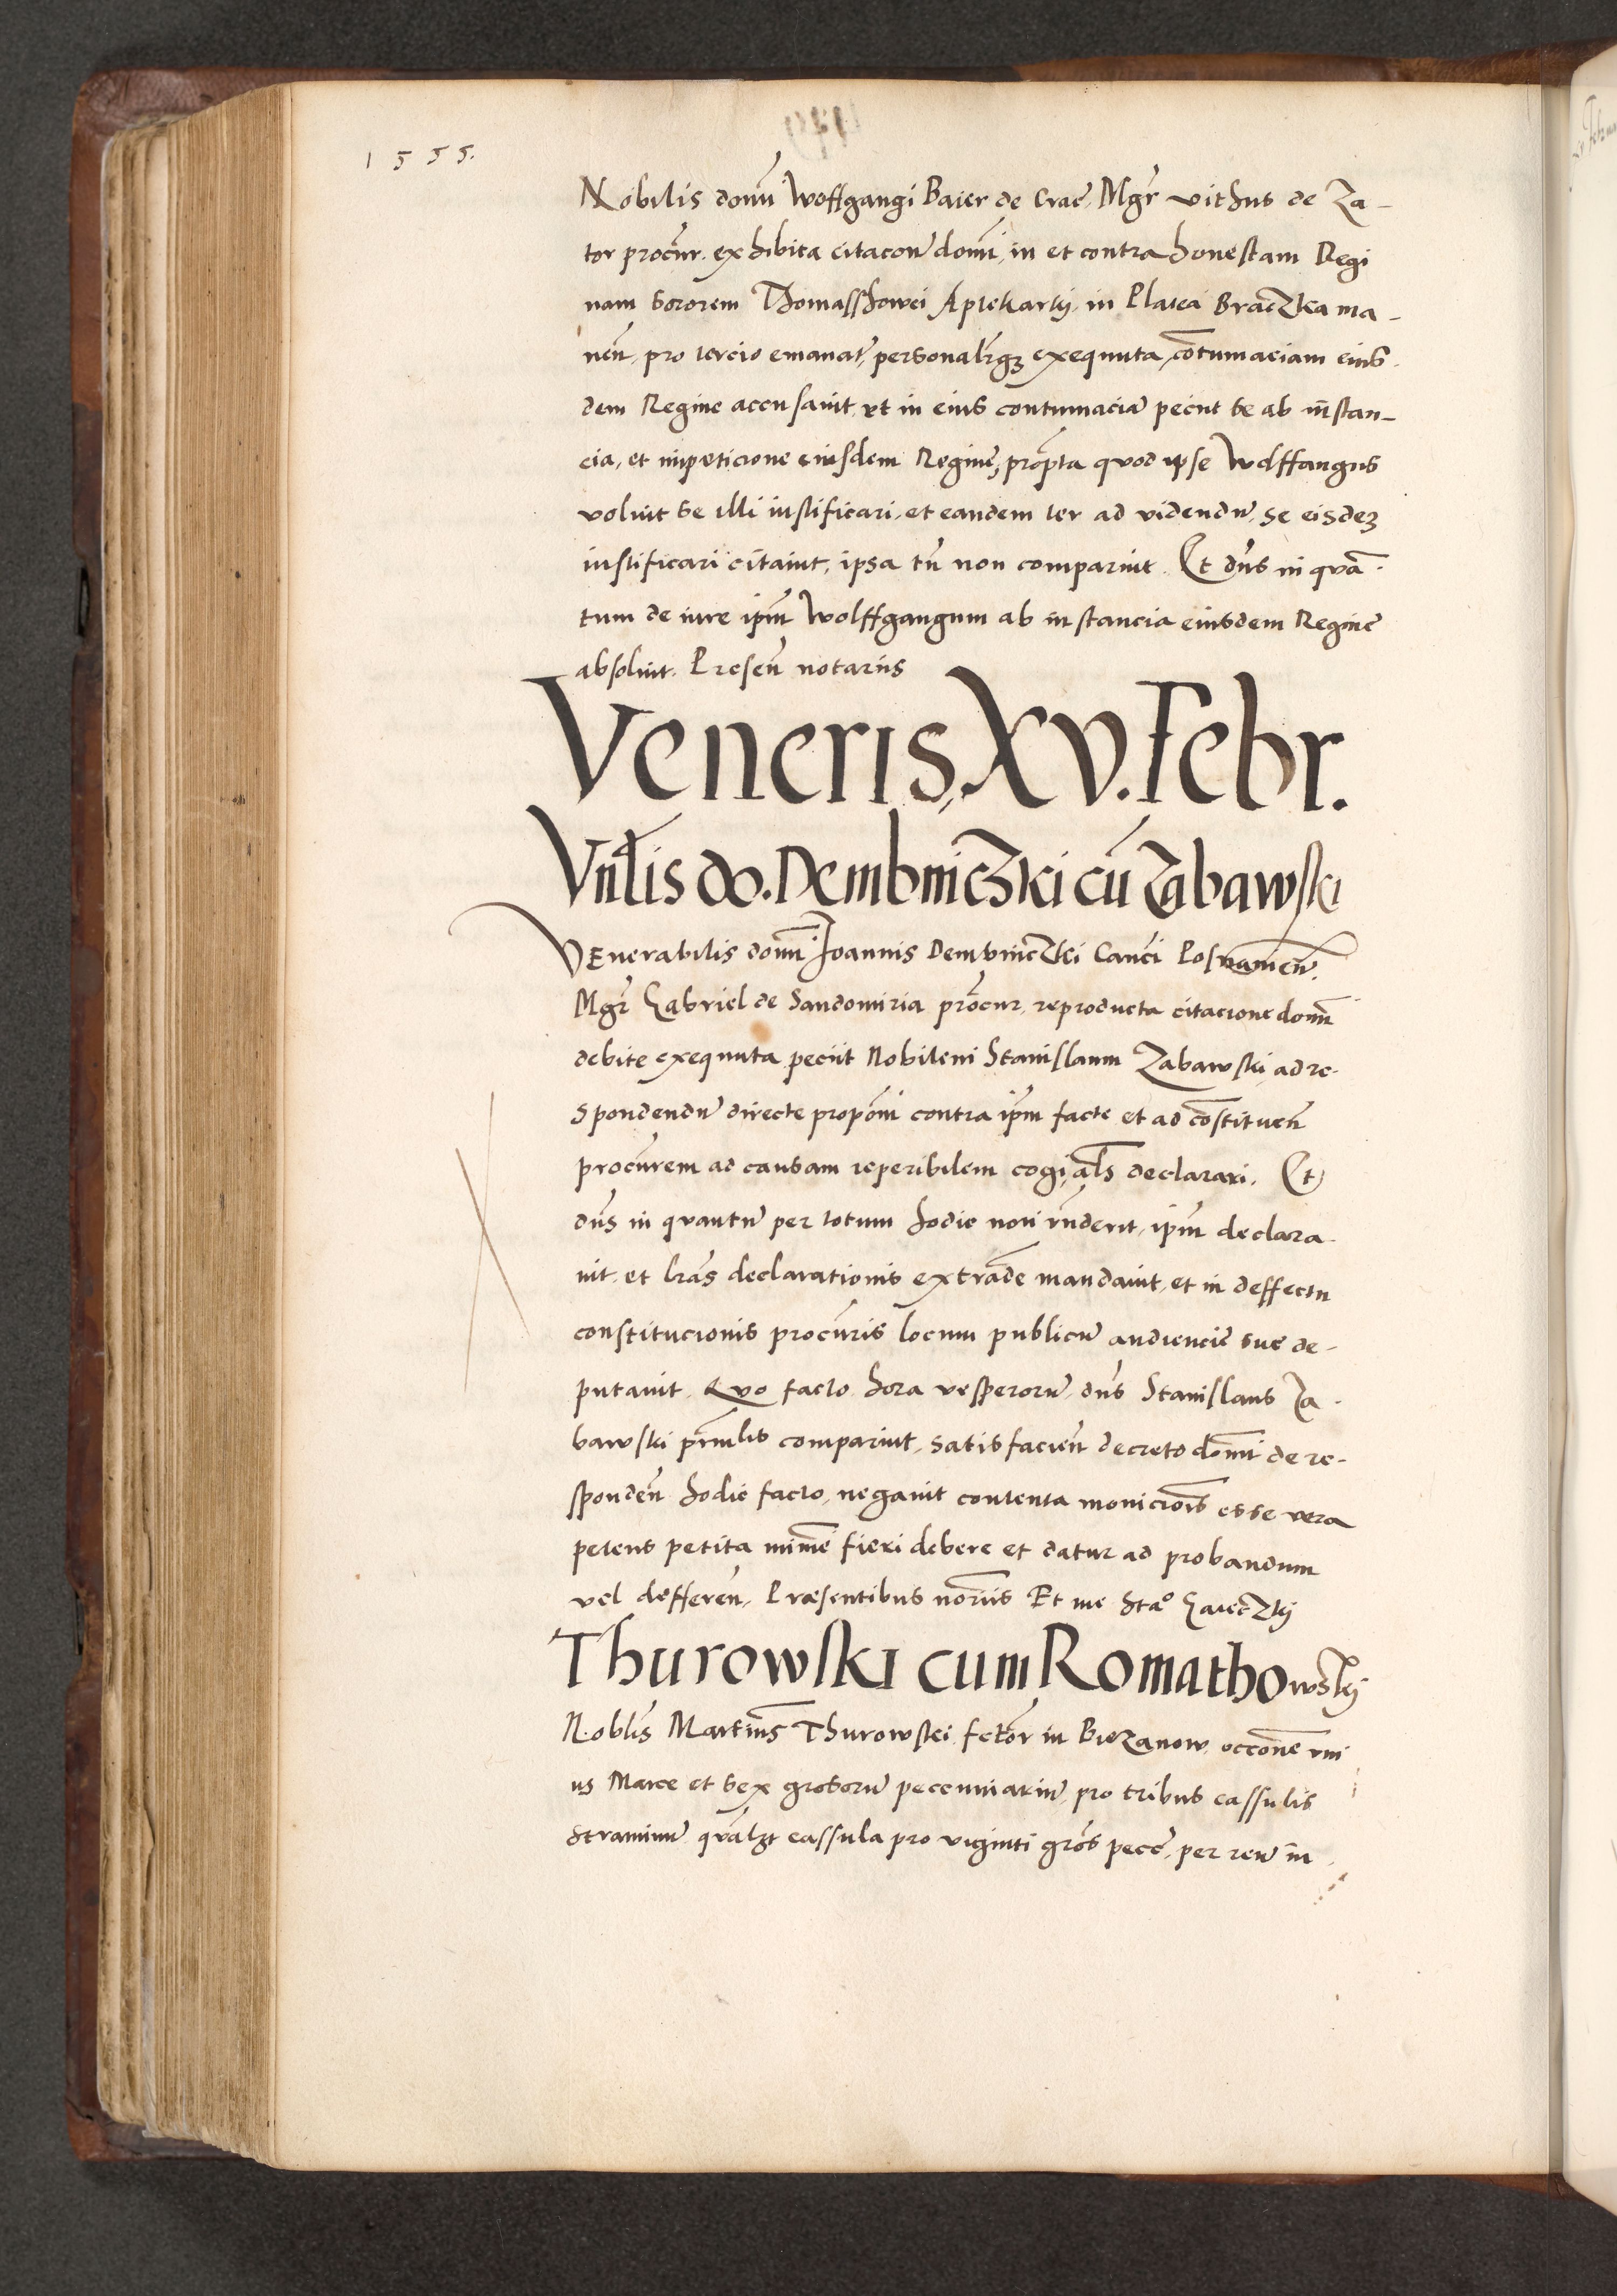 1555.
Nobilis domĩ Woffgangi Baier de Crac̃, Mgr̃ vithus de Za-
tor procur̃. exhibita citacoñe domĩ, in et contra honestam Regi
nam sororem Thomasshowei Aptekarkÿ in Platea Braczka ma-
neñ, pro tercio emanat̃, personalr̃qȝ exequuta, cõtumaciam eius-
dem Regine accusauit, et in eius contumaciã peciit se ab instan-
cia, et impeticione eiusdem Regine, prop̃ta quod ipse Wolffangus
voluit se illi iustificari, et eandem ter ad videndũ, se eisdeȝ
iustificari citauit, ipsa tñ non comparuit. Et dñs in quã-
tum de iure ip̃m Wolffgangum ab instancia eiusdem Regine
absoluit. Preseñ notariis
Veneris, XV. Febr.
Vnl̃is do. Dembniczki cũ Zabawski
VEnerabilis domĩ Ioannis Dembniczki Canc̃i Posnanieñ.
Mgr̃ Gabriel de Sandomiria procur̃, reproducta citacione domĩ
debite exequuta peciit Nobilem Stanislaum Zabawski, ad re-
spondendũ directe propoñi contra ip̃m facte et ad cõstitueñ
procur̃em ad causam reperibilem cogi, al̃s declarari. Et
dñs in quantũ per totum hodie non rñderit, ip̃m declara-
uit, et lr̃as declarationis extrade mandauit, et in deffectu
constitucionis procur̃is locum publicũ audiencie sue de-
putauit. Quo facto hora vesperorũ, dñs Stanislaus Za-
bawski prñlis comparuit, satisfacieñ decreto domĩ de re-
spondeñ hodie facto, negauit contenta monicoĩs esse vera
petens petita minĩe fieri debere et datur ad probandum
vel deffereñ, Præsentibus noriis Et me Stãº Gaieczkÿ
Thurowski cum Romathowskÿ
Nobl̃is Martinus Thurowski fctõr in Biezanow, occõne vni
us Marce et sex grosorũ pecunniariũ, pro tribus cassulis
straminũ qual̃t cassula pro viginti gros̃ pecc̃, per reũ in